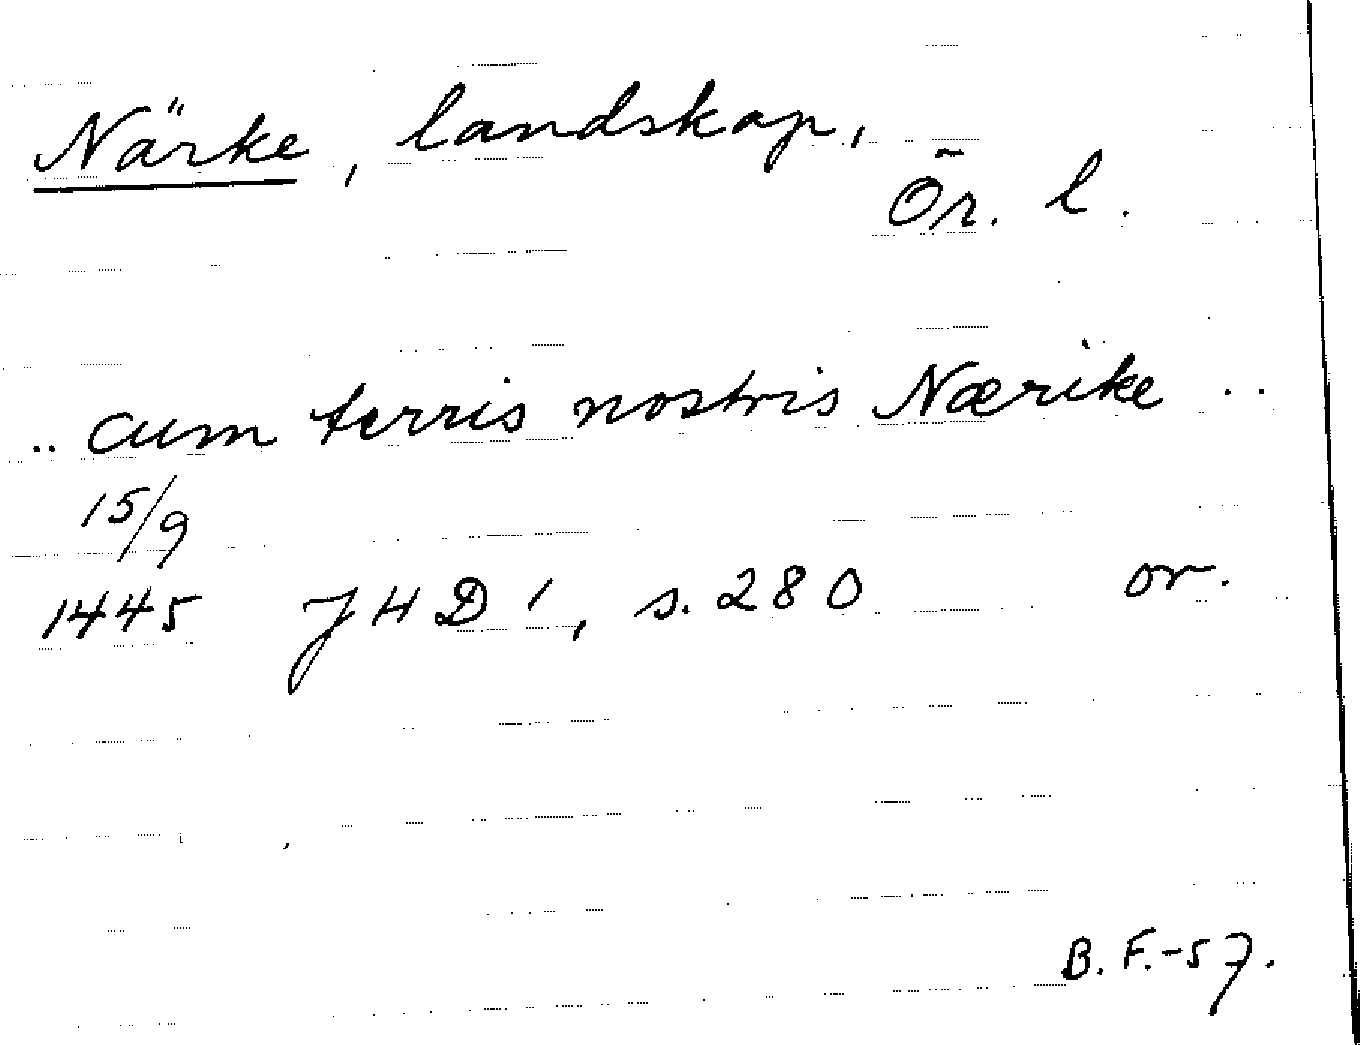 Närke, landskap,
Ör. l.
.. cum terris nostris Nærike ..
15/9
1445 JHD 1, s. 280 or.
B. F. -57.